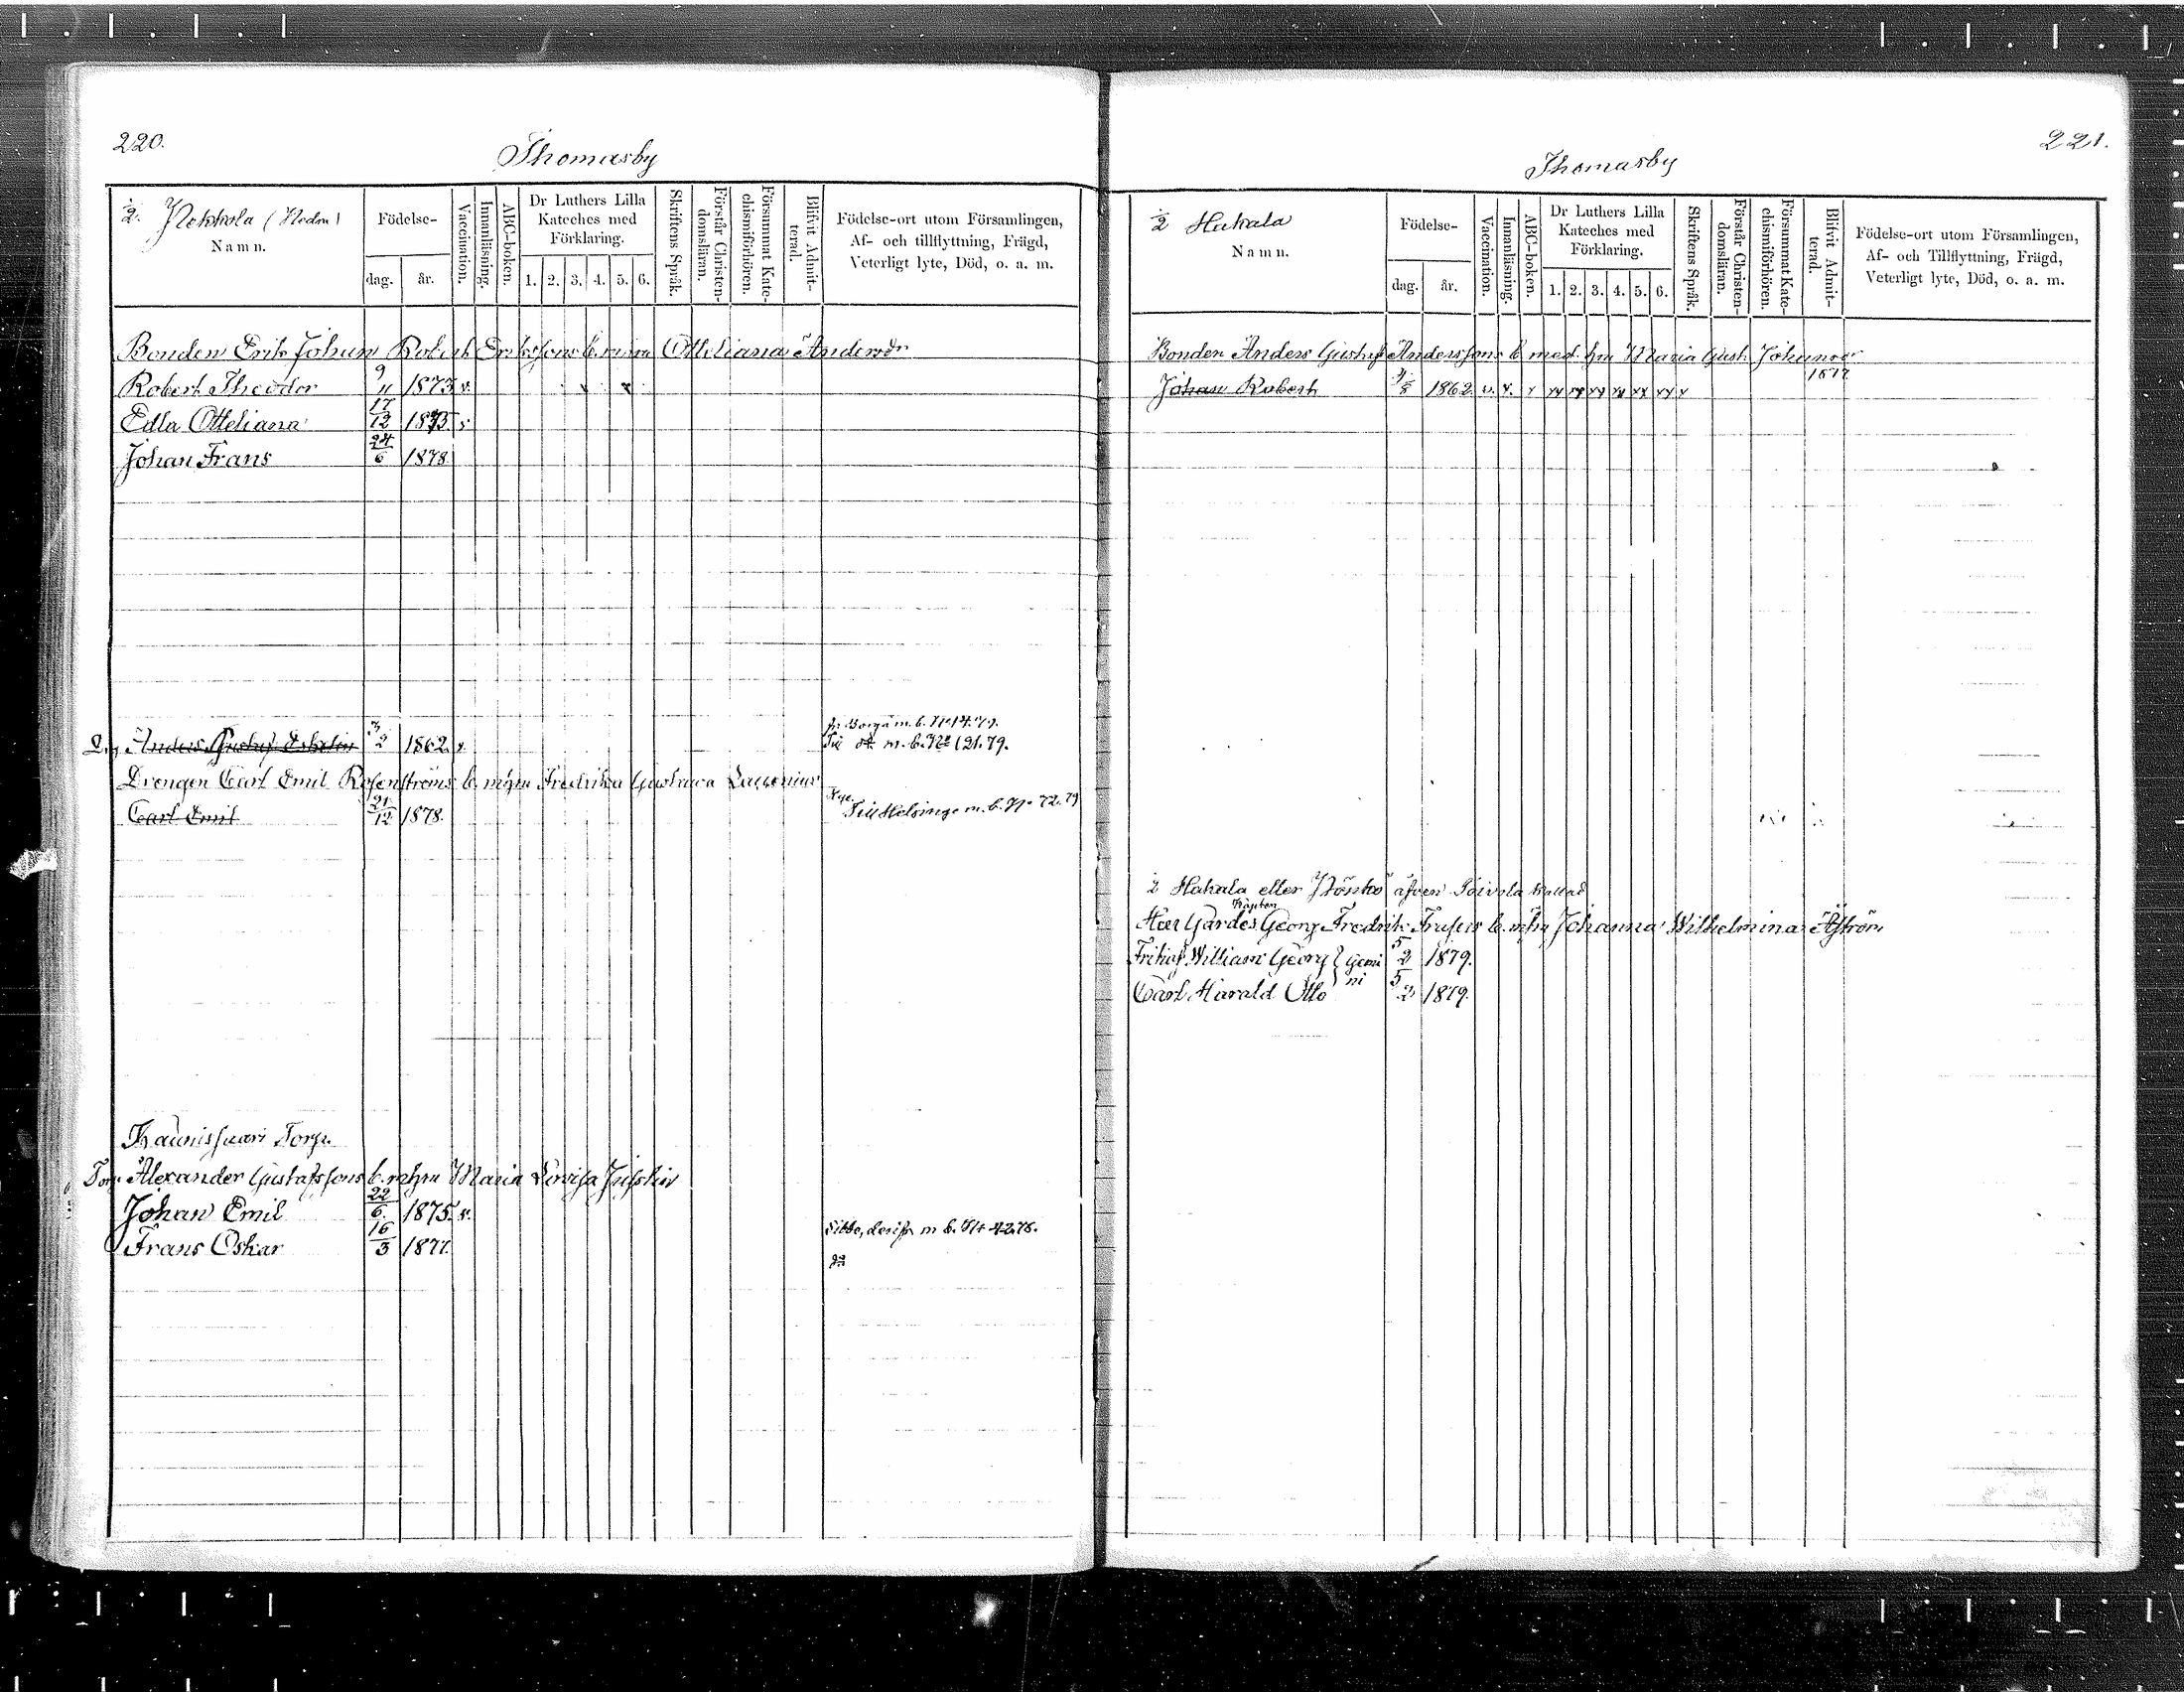 220.
Thomasby
½. Nekkola (Hedm)
Namn.
Födelse-
dag.
år.
Vaccination.
Innanläsning.
ABC-boken.
Dr Luthers Lilla Kateches med Förklaring.
1. 2. 3. 4. 5. 6.
Skriftens Språk.
Förstår Christendomsläran.
Försummat Katechismiförhören.
Blifvit Admitterad.
Födelse-ort utom Församlingen,
Af- och tillflyttning, Frägd,
Veterligt lyte, Död, o. a. m.
Bonden Erik Johan Robert Erikssons b. m. Otteliana Andersdr
Robert Theodor 9/11 1873 v.
Edla Otteliana 17/12 1875 v
Johan Frans 24/6 1878
Anders Gustaf Eskelin 7/2 1862 v. fr Borgå m. b. N:o 14.79.
Till m. b. N:o 121.79.
Drengen Carl Emil Rosenströms b. m. hu Fredrika Gustava
Carl Emil 21/12 1878. Till Helsinge m. b. N:o 72.79
Kaunissaari Torp.
Torp. Alexander Gustafssons b. m hu Maria Lovisa
Johan Emil 22/6 1875 v.
Frans Oskar 16/3 1877. Sibbo, m b. 42.78.
221.
Thomasby
½ Hakala
Namn.
Födelse-
dag.
år.
Vaccination.
Innanläsning.
ABC-boken.
Dr Luthers Lilla Kateches med Förklaring.
1. 2. 3. 4. 5. 6.
Skriftens Språk.
Förstår Christendomsläran.
Försummat Katechismiförhören.
Blifvit Admitterad.
Födelse-ort utom Församlingen,
Af- och Tillflyttning, Frägd,
Veterligt lyte, Död, o. a. m.
Bonden Anders Gustaf Anderssons b med hu Maria Gust. Johansdr
Johan Robert 4/8 1862 v. x. x xx xx xx xx xx xx x 1877
½ Hakala eller äfven Toivola kallad
Kapten
Georg Fredrik b. m hu Johanna Wilhelmina Åström
Frithiof William Georg } Gemi 5/2 1879.
Carl Harald Otto } ni 5/2 1879.